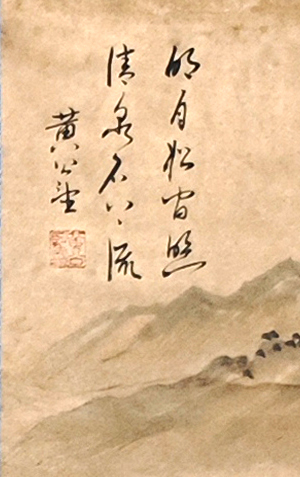 明月松間照
清泉石上流
黄公望